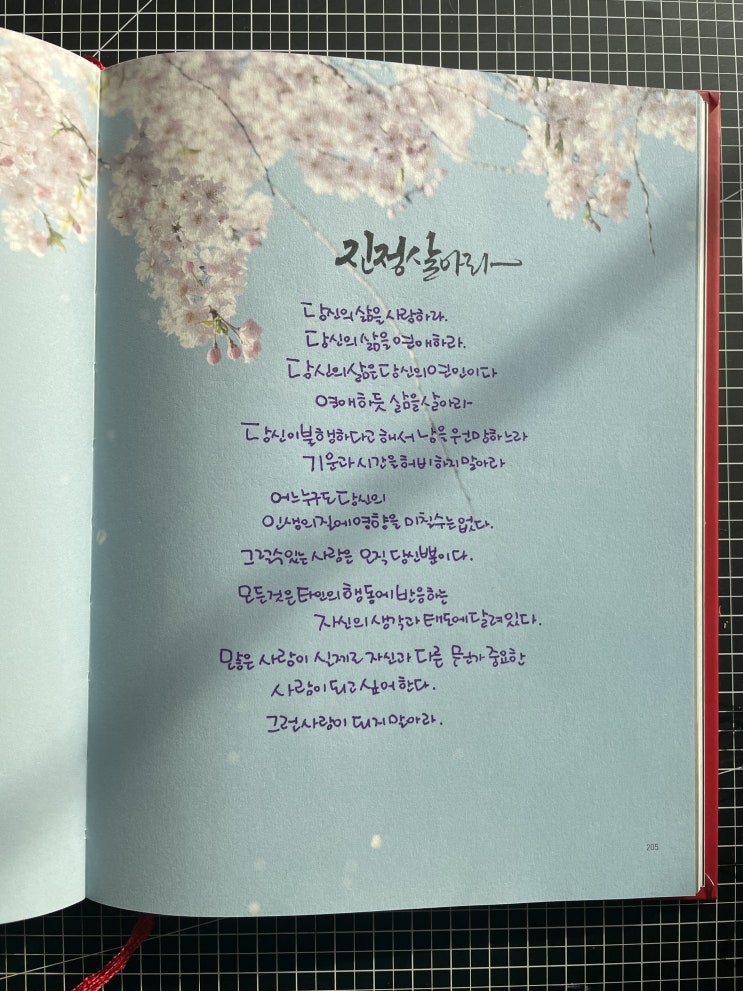 진정 살아라
당신의 삶을 사랑하라.
당신의 삶을 연애하라.
당신의 삶은 당신의 연인이다
연애하듯 삶을 살아라
당신이 불행하다고 해서 남을 원망하느라
기운과 시간을 허비하지 말아라
어느누구도 당신의
인생의 질에 영향을 미칠수는 없다.
그럴수 있는 사람은 오직 당신뿐이다.
모든것은 타인의 행동에 반응하는
자신의 생각과 태도에 달려있다.
많은 사람이 실제로 자신과 다른 뭔가 중요한
사람이 되고 싶어 한다.
그런 사람이 되지 말아라.
205